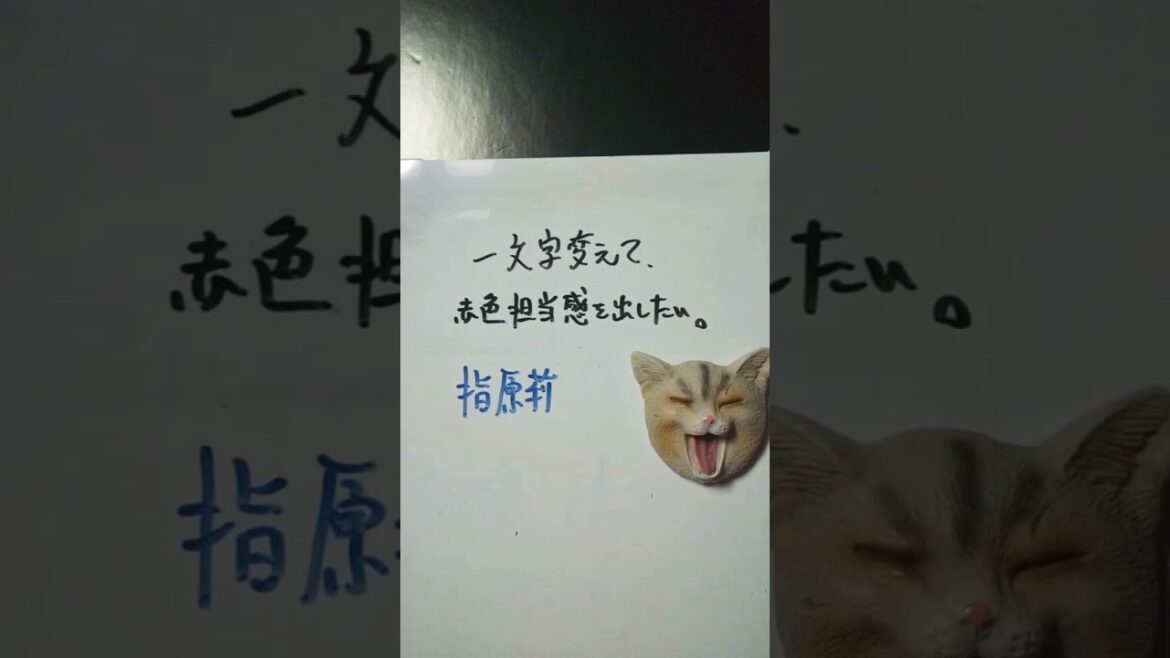 一文字変えて、
赤色担当感を出したい。
指原莉